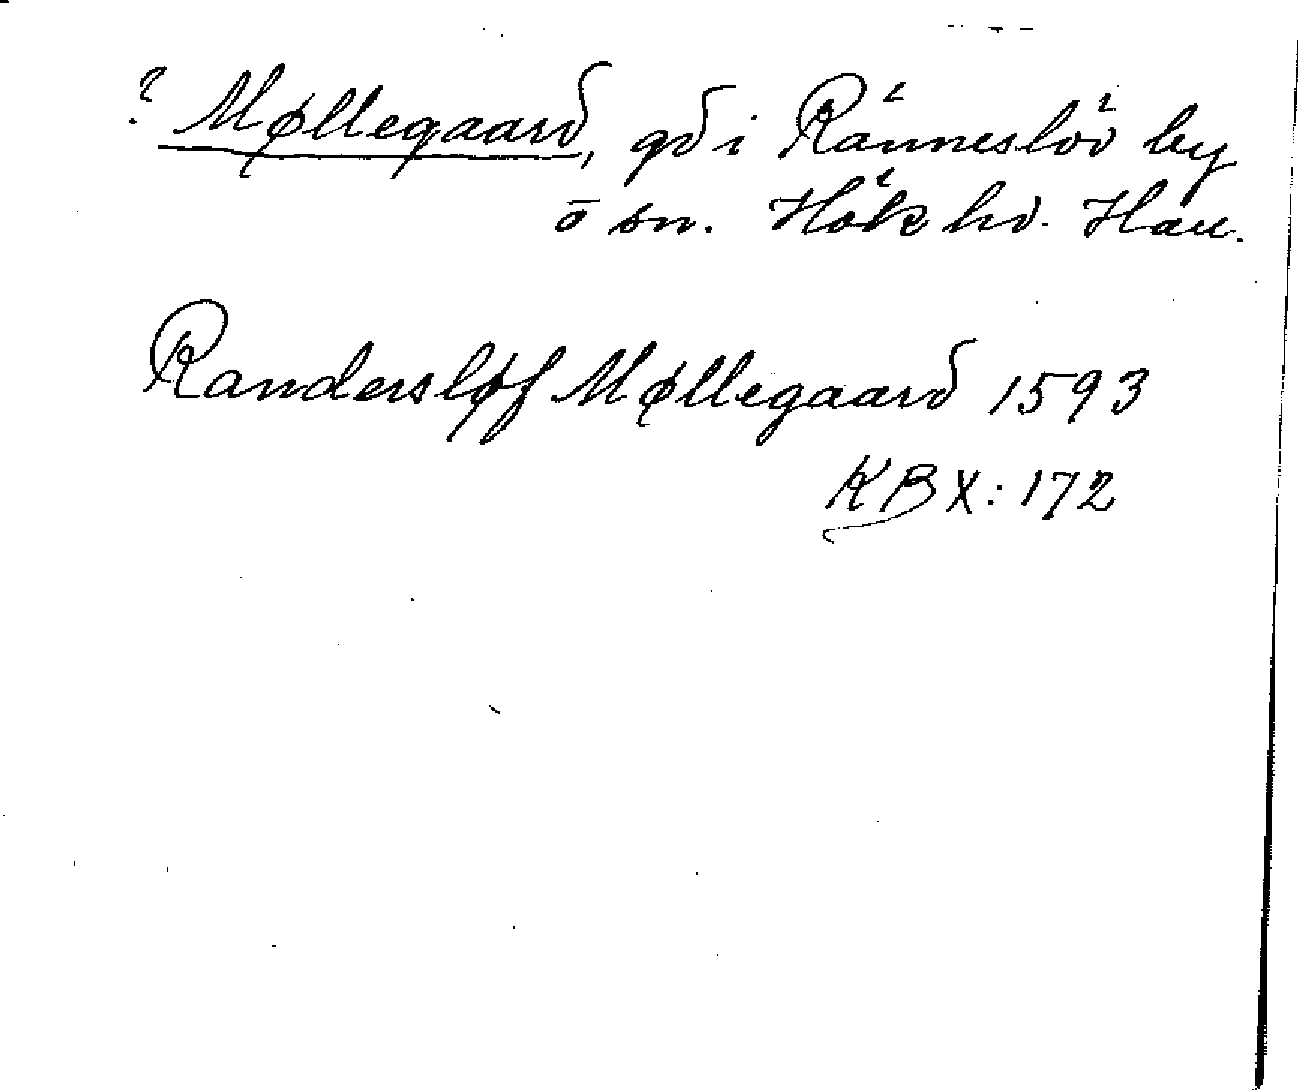 ? Møllegaard, gd i Ränneslöv by
o sn. Höks hd. Hall.
Randersløf Møllegaard 1593
KB X: 172